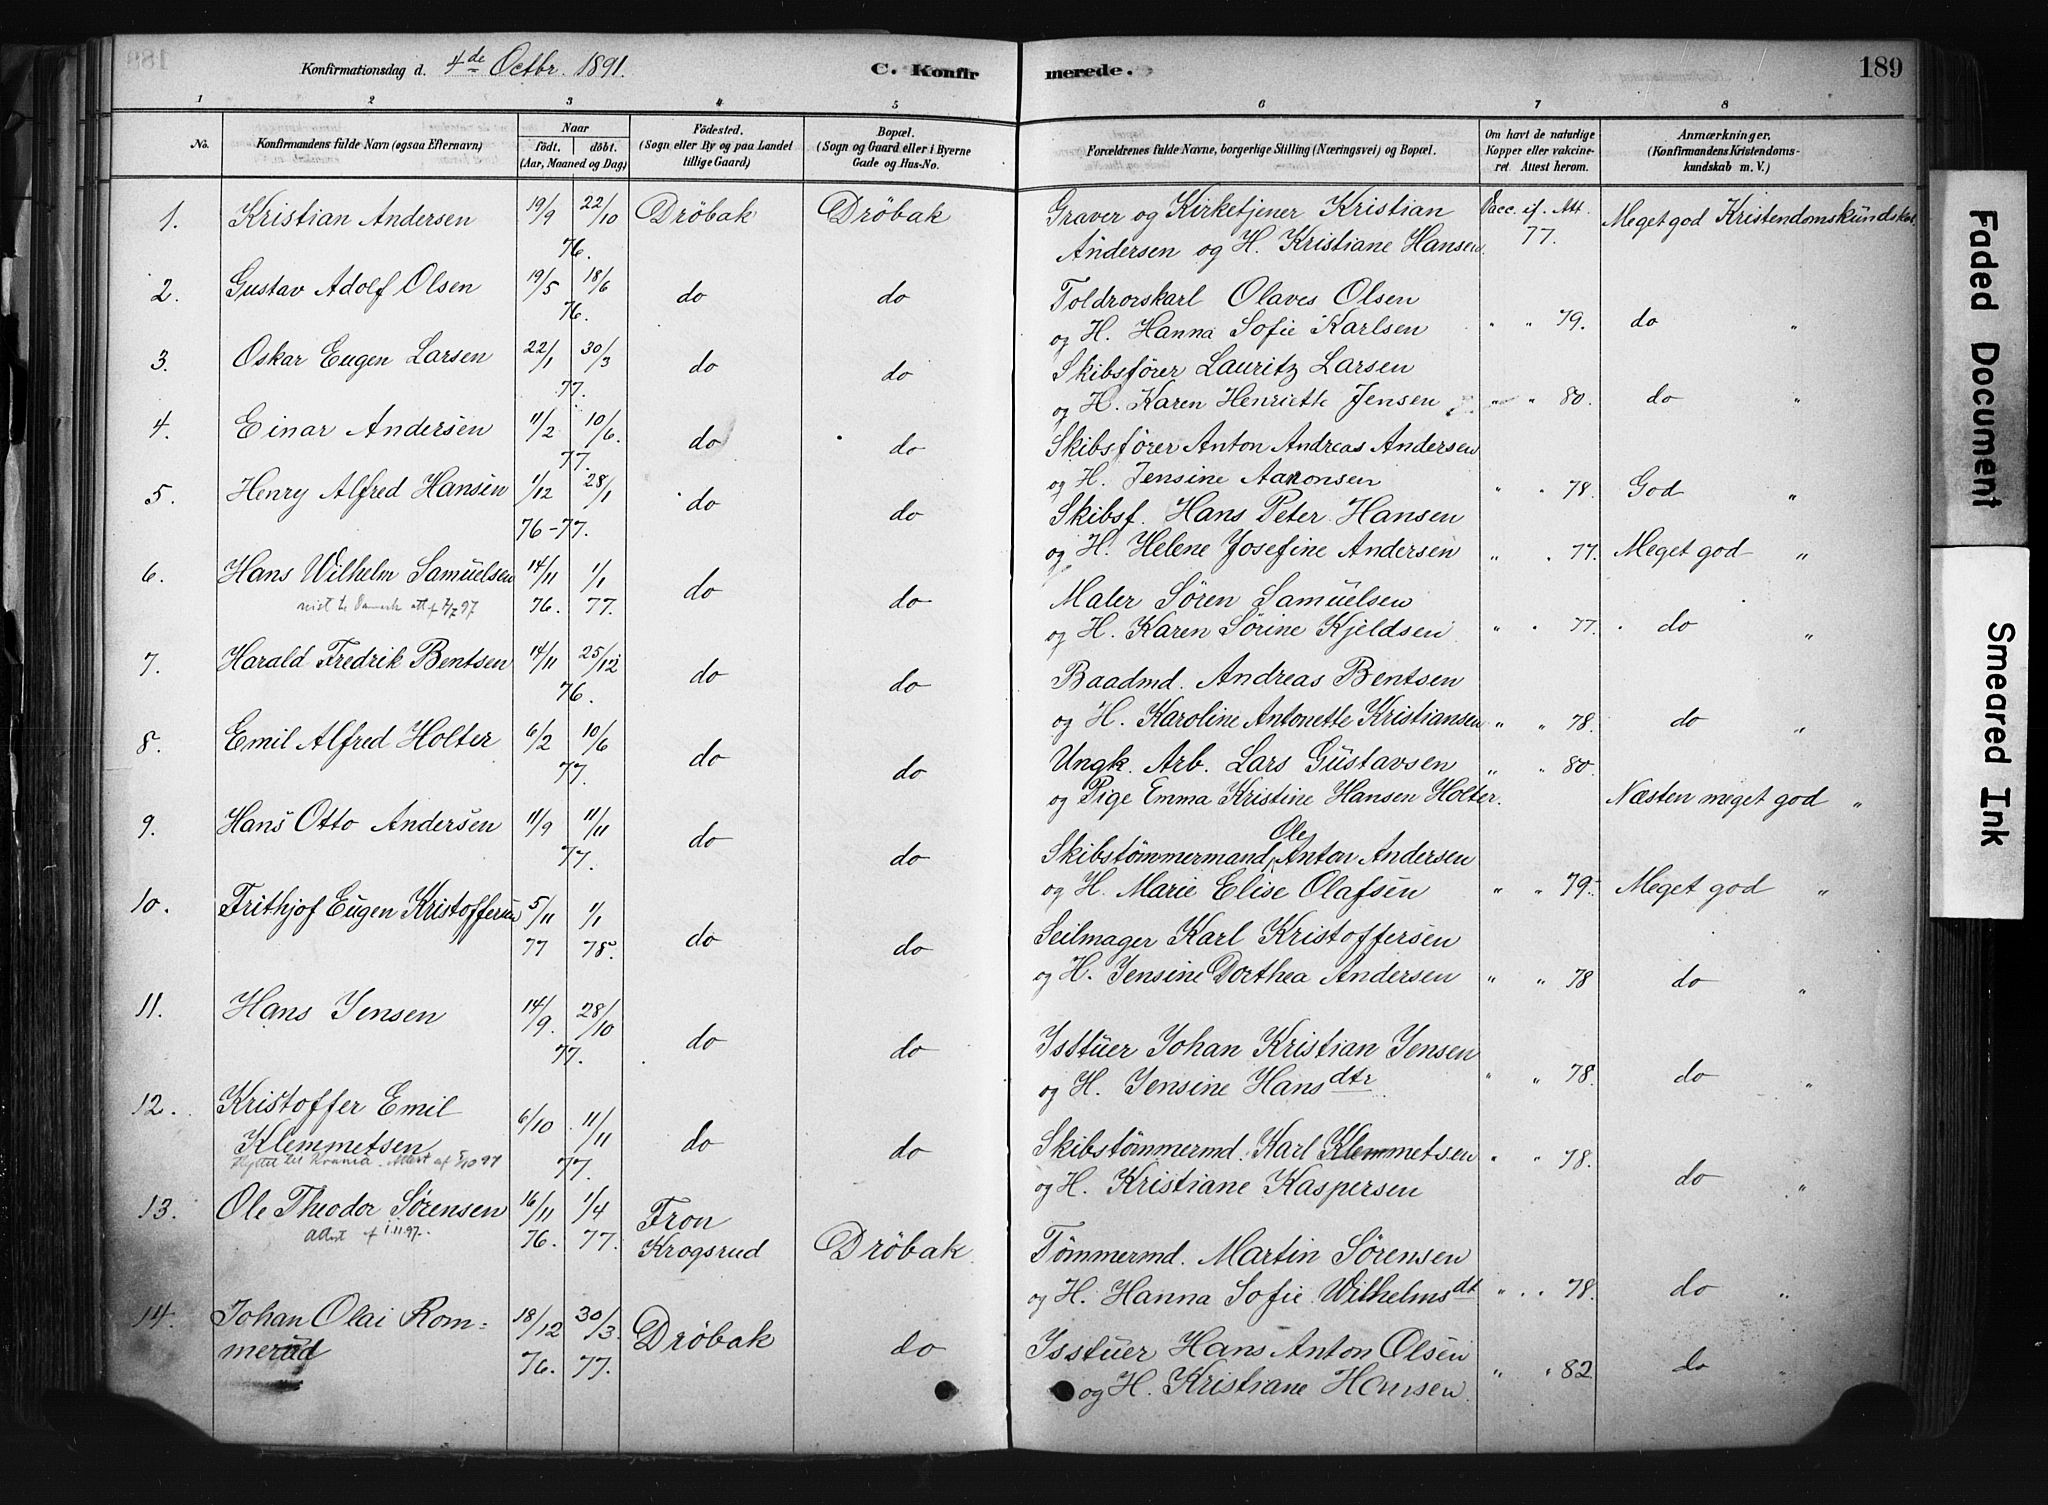 Konfirmationsdag d. 4de Octbr. 1891. C. Konfirmerede. 189
1 2 3 4 5 6 7 8
No. Konfirmandens fulde Navn (ogsaa Efternavn) Naar født. døbt. (Aar, Maaned og Dag) Födested. (Sogn eller By og paa Landet tillige Gaard) Bopæl. (Sogn og Gaard eller i Byerne Gade og Hus-No. Forældrenes fulde Navne, borgerlige Stilling (Næringsvei) og Bopæl. Om havt de naturlige Kopper eller vakcineret Attest herom. Anmærkninger. (Konfirmandens Kristendomskundskab m. V.)
1. Kristian Andersen 19/9 22/10 76. Dröbak Dröbak Graver og Kirketjener Kristian Andersen og H. Kristiane Hansen Vacc. if. Att. 77. Meget god Kristendomskundskab.
2. Gustav Adolf Olsen 19/5 18/6 76. do do Toldrorskarl Olaves Olsen
og H. Hanna Sofie Karlsen " " 79. do "
3. Oskar Eugen Larsen 22/1 30/3 77. do do Skibsfører Lauritz Larsen
og H. Karen Henriette Jensen " " 80. do "
4. Einar Andersen 11/2 10/6. 77. do do Skibsfører Anton Andreas Andersen
og H. Jensine Aaronsen " " 78. God "
5. Henry Alfred Hansen 1/12 28/1 76-77. do do Skibsf. Hans Peter Hansen
og H. Helene Josefine Andersen " " 77. Meget god "
6. Hans Wilhelm Samuelsen 14/11 76. 1/1 77. do do Maler Sören Samuelsen
og H. Karen Sörine Kjeldsen " " 77. do "
7. Harald Fredrik Bentsen 14/11 25/12 76. do do Baadmd. Andreas Bentsen
og H. Karoline Antonette Kristiansen " " 78. do "
8. Emil Alfred Holter 6/2 10/6 77. do do Ungk. Arb. Lars Gustavsen " " 80.
og Pige Emma Kristine Hansen Holter. Næsten meget god "
9. Hans Otto Andersen 11/9 11/11 77. do do Skibstömmermand Ole Anton Andersen
og H. Marie Elise Olafsen " " 79. Meget god "
10. Frithjof Eugen Kristoffersen 5/11 77 1/1 78. do do Seilmager Karl Kristoffersen
og H. Jensine Dorthea Andersen " " 78 do "
11. Hans Jensen 14/9. 28/10 77. do do Isstuer Johan Kristian Jensen
og H. Jensine Hansdtr " " 78. do "
12. Kristoffer Emil Klemmetsen 6/10 11/11 77. do do Skibstömmermd. Karl Klemmetsen " " 78.
og H. Kristiane Kaspersen do "
13. Ole Theodor Sørensen 16/11 76. 1/4 77. Fron Krogsrud Dröbak Tömmermd. Martin Sörensen
og H. Hanna Sofie Wilhelmsdt " " 78. do "
14. Johan Olai Rommerud 18/12 76. 30/3. 77. Dröbak do Isstuer Hans Anton Olsen
og H. Kristiane Hansen. " " 82. do "
Faded Document
Smeared Ink